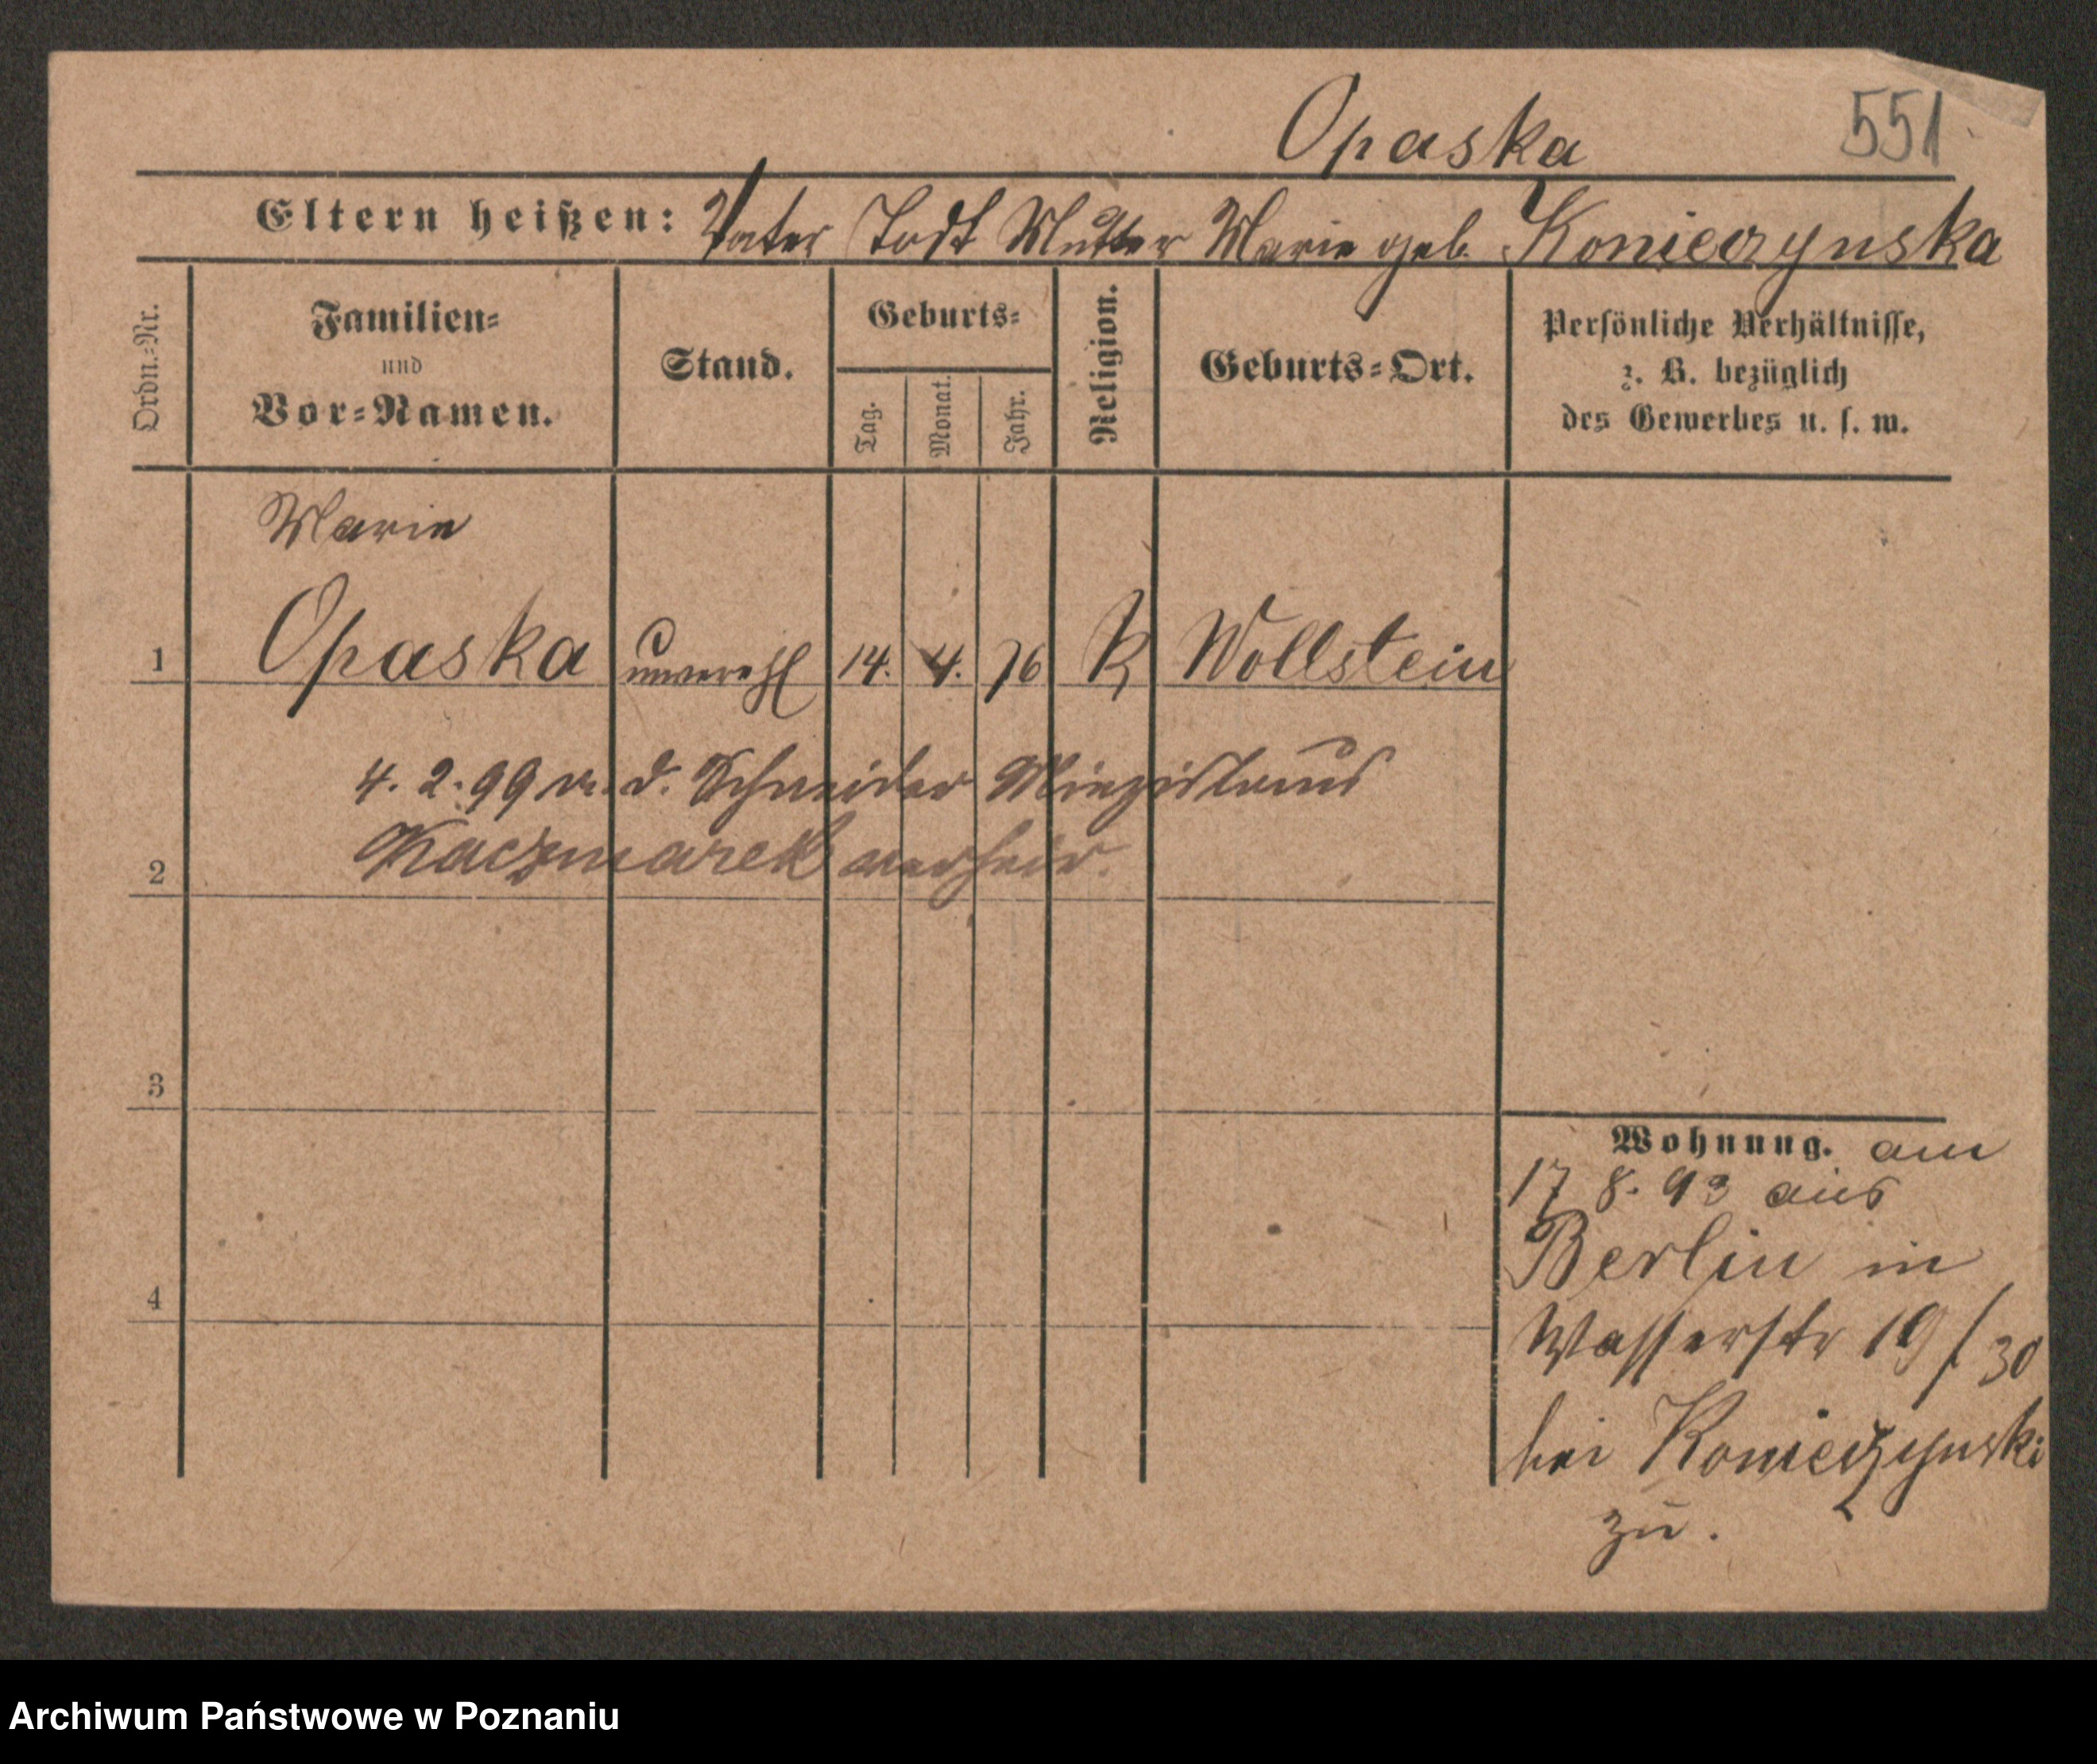 Opaska
551
Eltern heißen: Vater Todt Mutter Marie geb. Konieczynska
Ordn.-Nr.
Familien-
und
Vor-Namen.
Stand.
Geburts-
Tag.
Monat.
Jahr.
Religion.
Geburts-Ort.
Persönliche Verhältnisse,
z. B. bezüglich
des Gewerbes u. s. w.
Marie
1 Opaska unverehl 14. 4. 76 K Wollstein
4. 2. 99 m. d. Schneider
2 Kaczmarek verheir.
3
4
Wohnung. am
17 8. 93 aus
Berlin in
Wasserstr 19/30
bei Konieczynski
zu.
Archiwum Państwowe w Poznaniu